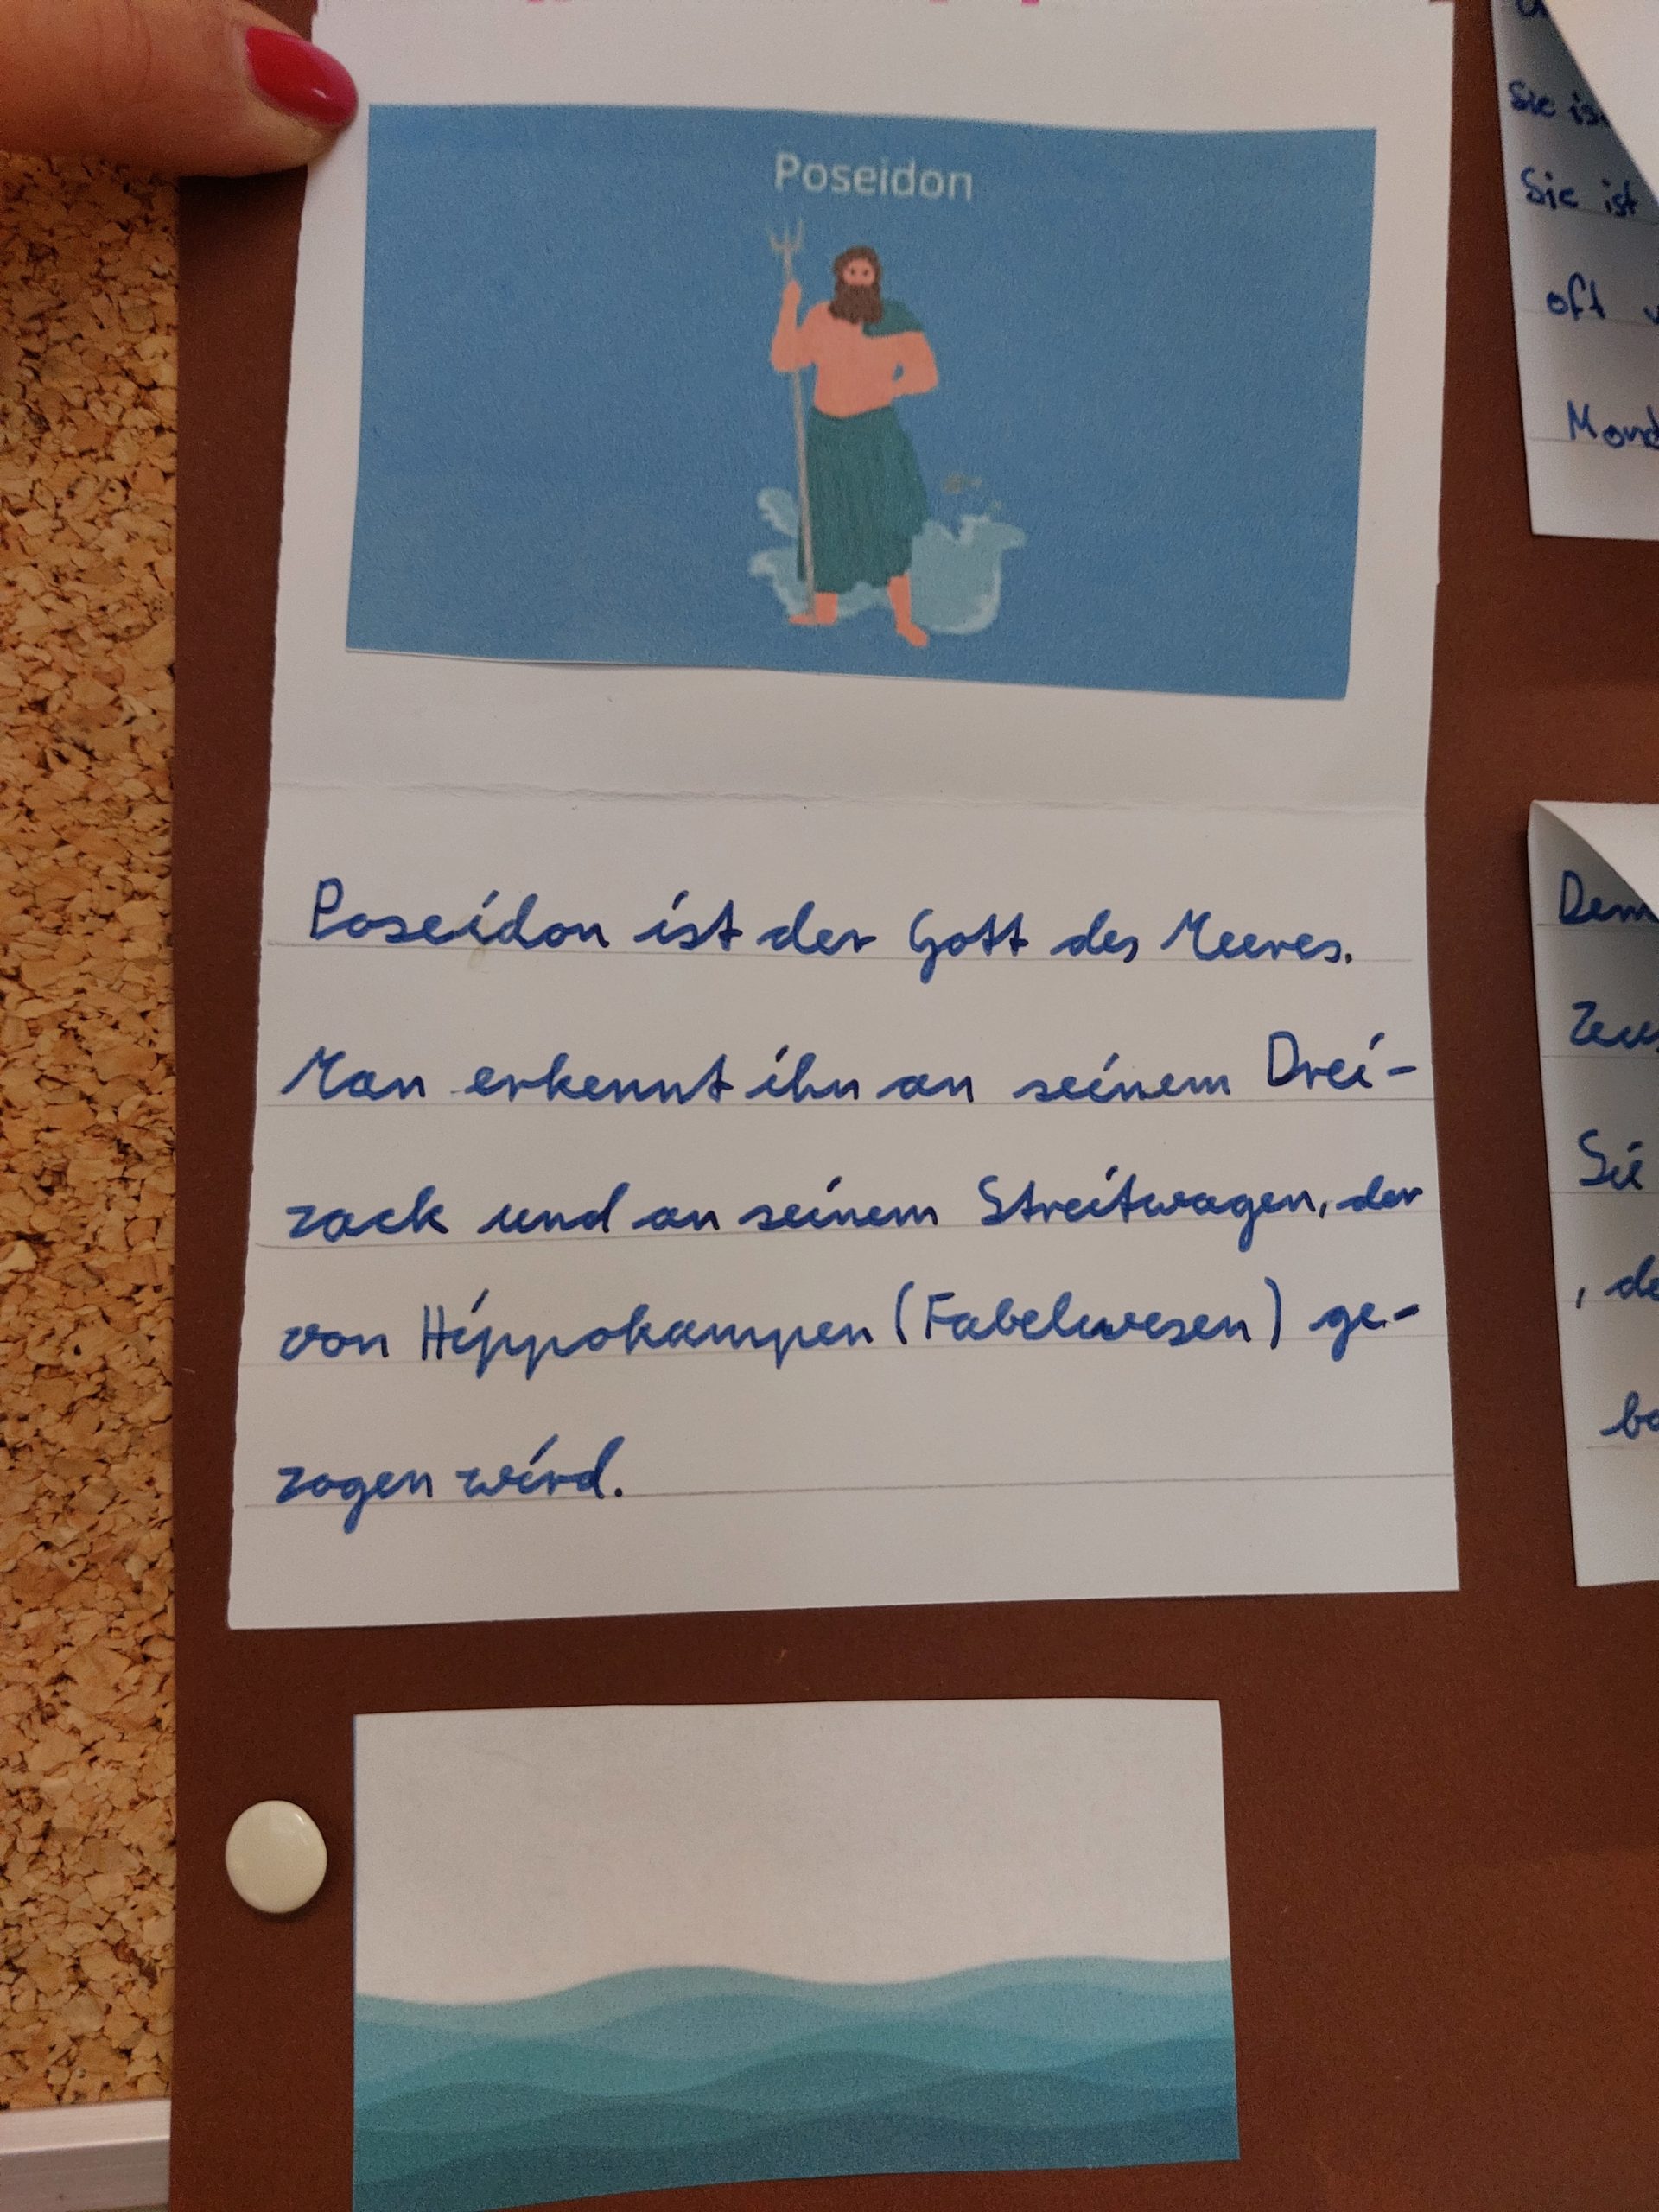 Poseidon
Poseidon ist der Gott des Meeres.
Man erkennt ihn an seinem Drei-
zack und an seinem Streitwagen, der
von Hippokampen (Fabelwesen) ge-
zogen wird.
Sie ist
Sie ist
oft
Mond
Dem
Zeus
Sie
, de
be